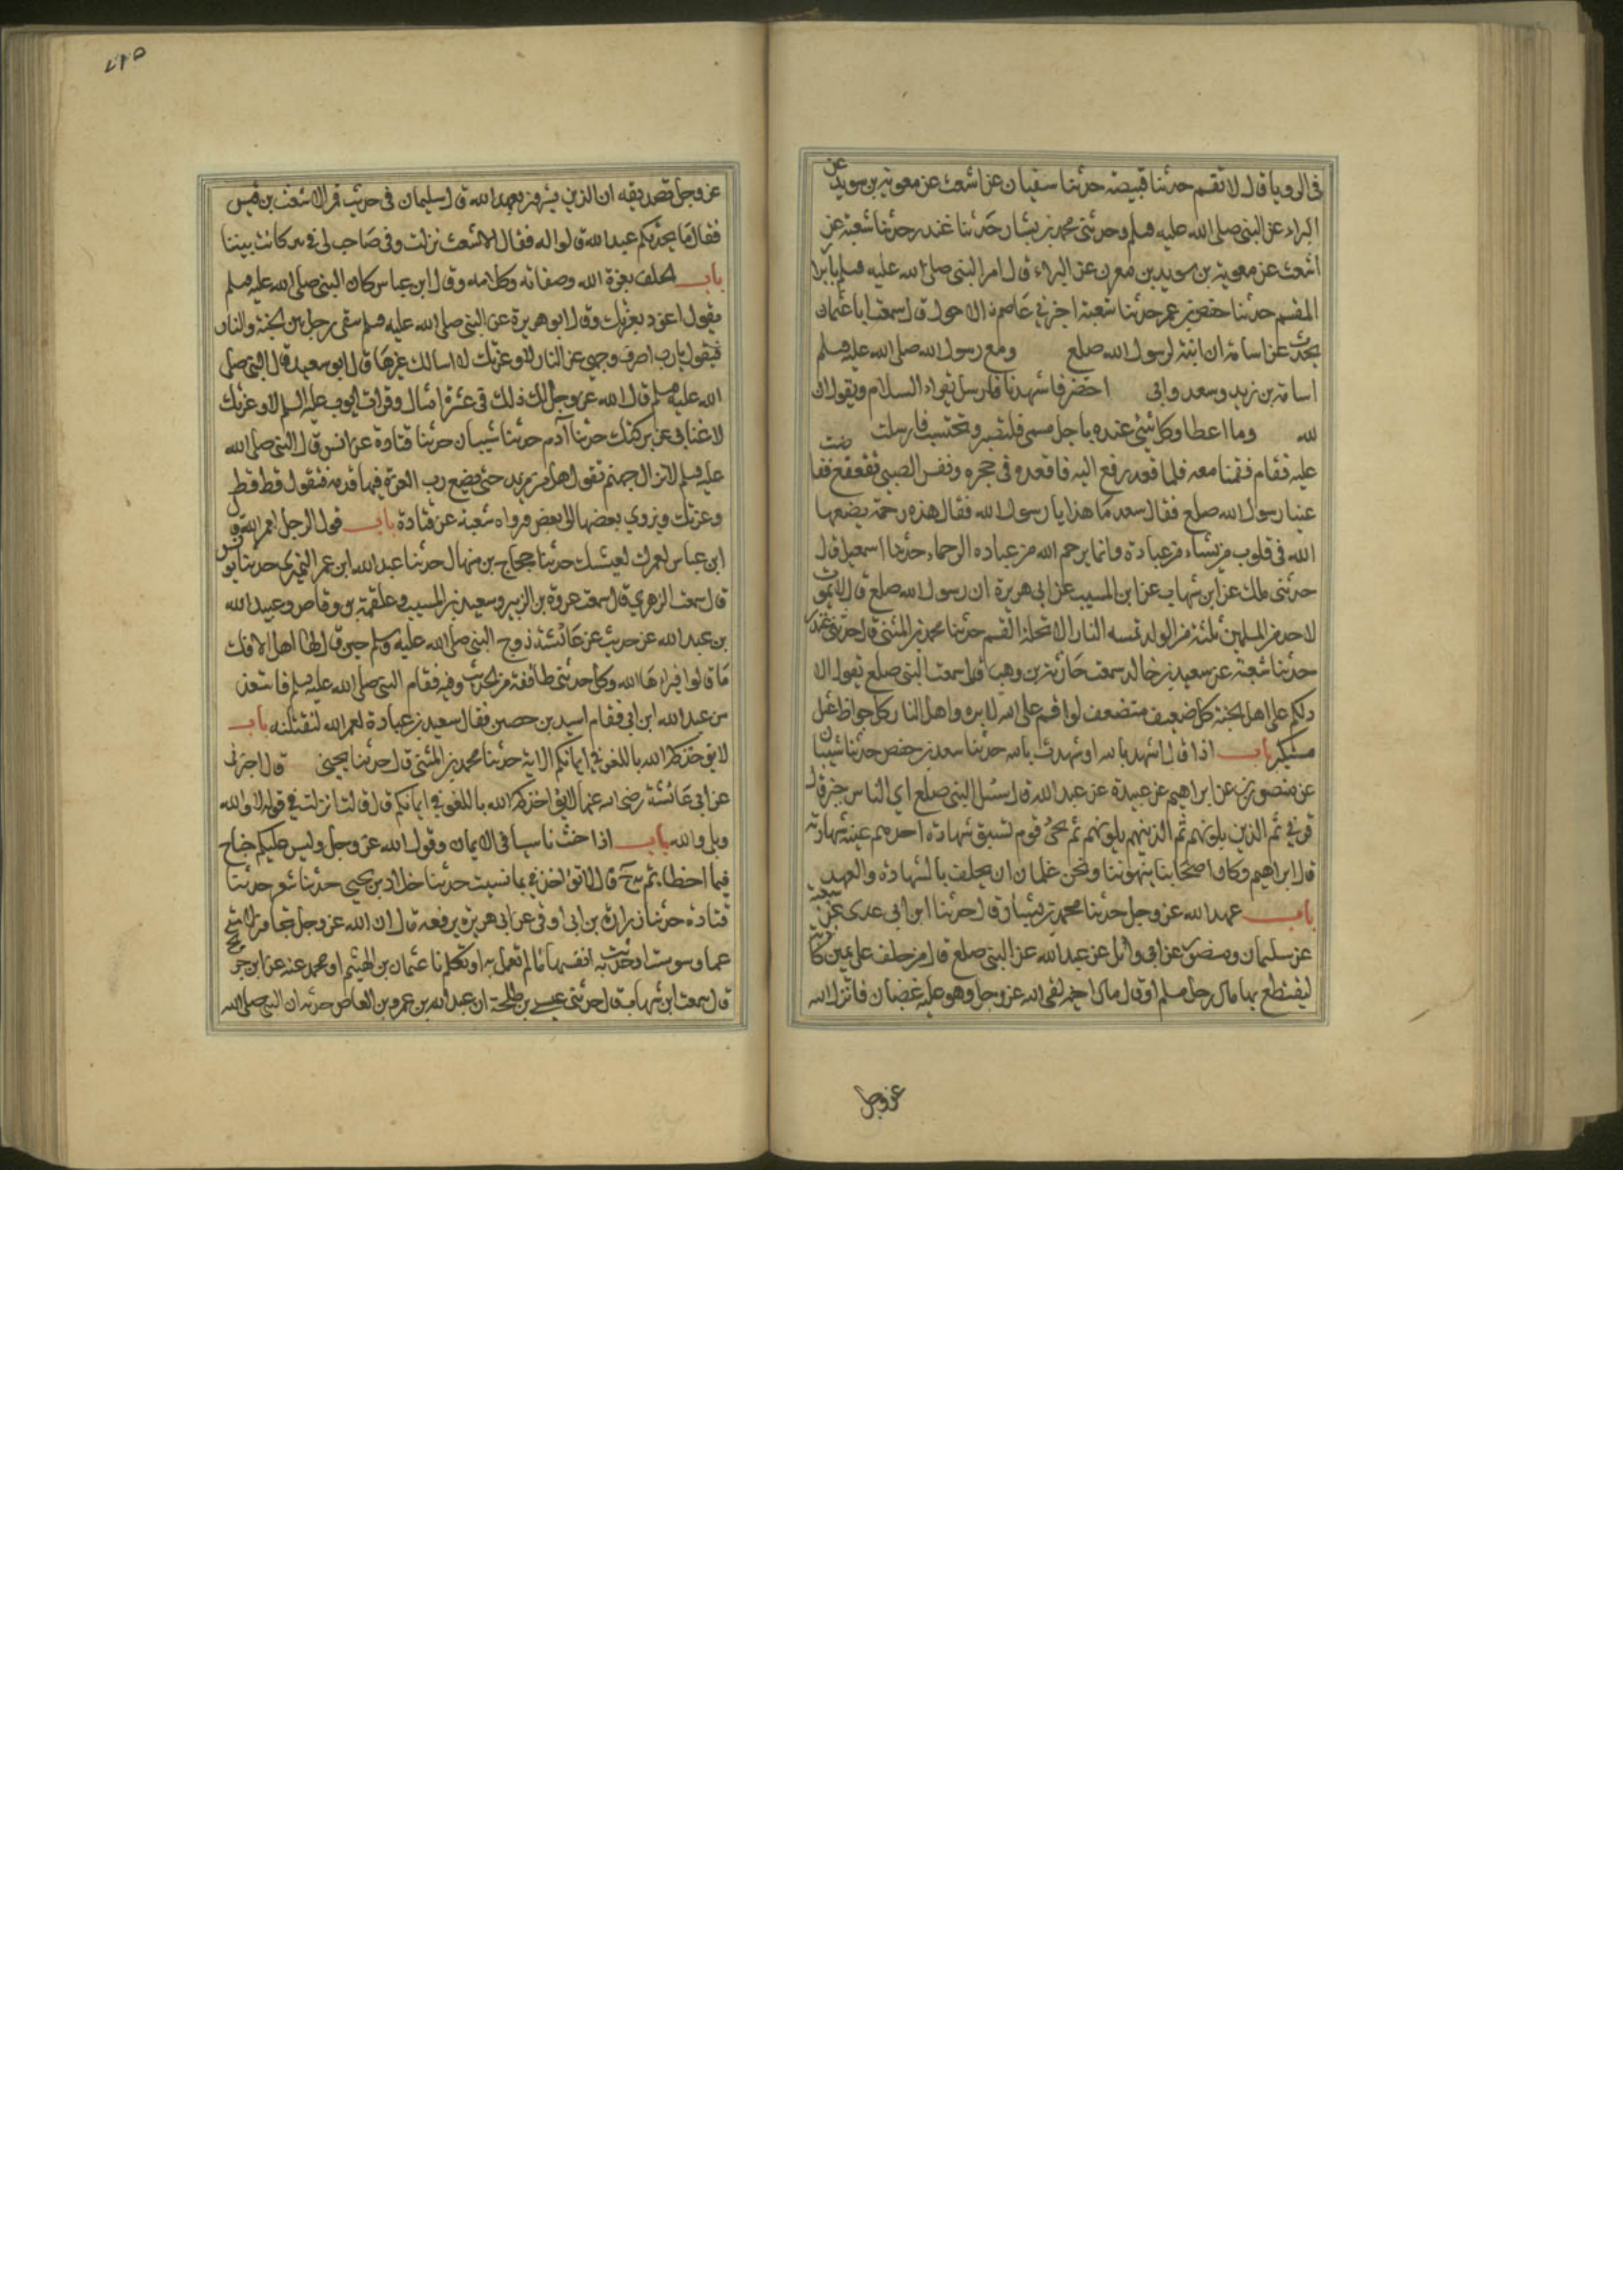 في الرويا قال لا تقسم حدثنا قبيصة حدثنا سفيان عن اشعث عن معوية بن سويد عن
البراء عن النبي صلى الله عليه وسلم وحدثني محمد بن بشار حدثنا غندر حدثنا شعبة عن
اشعث عن معوية بن سويد بن مقرن عن البراء قال امر النبي صلى الله عليه وسلم بابرا
المقسم حدثنا حفص بن عمر حدثنا شعبة اخبرني عاصم الاحول قال سمعت ابا عثمان
يحدث عن اسامة ان ابنة لرسول الله صلعم ومع رسول الله صلى الله عليه وسلم
اسامة بن زيد وسعد وابي احتضر فاشهدنا فارسل يقراء السلام ويقول ان
لله وما اعطا وكل شئ عنده باجل مسمى فلتصبر وتحتسب فارسلت
عليه فقام فقمنا معه فلما قعد رفع اليه فاقعده في حجره ونفس الصبي تقعقع ففا ضت
عينا رسول الله صلعم فقال سعد ما هذا يا رسول الله فقال هذه رحمة يضعها
الله في قلوب من يشاء من عباده وانما يرحم الله من عباده الرحماء حدثنا اسمعيل قال
حدثني ملك عن ابن شهاب عن ابن المسيب عن ابي هريرة ان رسول الله صلعم قال لا يموت
لاحد من المسلمين ثلثة من الولد تمسه النار الا تحلة القسم حدثنا محمد بن المثنى قال حدثني غندر
حدثنا شعبة عن سعيد بن خالد سمعت حارثة بن وهب قال سمعت النبي صلعم يقول الا
دلكم على اهل الجنة كل ضعيف متضعف لو اقسم على الله لابره واهل النار كل جواظ عتل
مستكبر باب اذا قال اشهد بالله او شهدت بالله حدثنا سعد بن حفص حدثنا شيبان
عن منصور عن ابراهيم عن عبيدة عن عبد الله قال سئل النبي صلعم اي الناس خير قال
قرني ثم الذين يلونهم ثم الذين يلونهم ثم يجئ قوم تسبق شهادة احدهم يمينه شهادته
قال ابراهيم وكان اصحابنا ينهوننا ونحن غلمان ان يحلف بالشهادة والعهد
باب عهد الله عز وجل حدثنا محمد بن بشار قال حدثنا ابن ابي عدي عن شعبة
عن سليمان ومنصور عن ابي وائل عن عبد الله عن النبي صلعم قال من حلف على يمين كاذبة
ليقتطع بها مال رجل مسلم او قال مال اخيه لقي الله عز وجل وهو عليه غضبان فانزل الله
عز وجل
عز وجل تصديقه ان الذين يشترون بعهد الله قال سليمان في حديثه فمر الاشعث بن قيس
فقال ما يحدثكم عبد الله قالوا له فقال الاشعث نزلت وفي صاحب لي في بير كانت بيننا
باب الحلف بعزة الله وصفاته وكلامه وقال ابن عباس كان النبي صلى الله عليه وسلم
يقول اعوذ بعزتك وقال ابو هريرة عن النبي صلى الله عليه وسلم يبقى رجل بين الجنة والنار
فيقول يا رب اصرف وجهي عن النار لا وعزتك لا اسالك غيرها قال ابو سعيد قال النبي صلى
الله عليه وسلم قال الله عز وجل لك ذلك وعشرة امثاله وقال ايوب عليه السلم لا وعزتك
لا غنا بي عن بركتك حدثنا آدم حدثنا شيبان حدثنا قتادة عن انس قال النبي صلى الله
عليه وسلم لا تزال جهنم تقول هل من مزيد حتى يضع رب العزة فيها قدمه فتقول قط قط
وعزتك ويزوي بعضها الى بعض ورواه شعبة عن قتادة باب قول الرجل لعمر الله قال
ابن عباس لعمرك لعيشك حدثنا حجاج بن منهال حدثنا عبد الله ابن عمر النميري حدثنا يونس
قال سمعت الزهري قال سمعت عروة بن الزبير وسعيد بن المسيب وعلقمة بن وقاص وعبيد الله
بن عبد الله عن حديث عن عائشة زوج النبي صلى الله عليه وسلم حين قال لها اهل الافك
ما قالوا فبراها الله وكل حدثني طائفة من الحديث وفيه فقام النبي صلى الله عليه وسلم فاستعذر
من عبد الله ابن ابي فقام اسيد بن حصين فقال سعيد بن عبادة لعمر الله لنقتلنه باب
لا يؤاخذكم الله باللغو في ايمانكم الاية حدثنا محمد بن المثنى قال حدثنا يحيى قال اخبرني
عن ابي عائشة رضي الله عنها لا يؤاخذكم الله باللغو في ايمانكم قال قالت انزلت في قوله لا والله
وبلى والله باب اذا حنث ناسيا في الايمان وقول الله عز وجل وليس عليكم جناح
فيما اخطاتم به وقال لا تؤاخذني بما نسيت حدثنا خلاد بن يحيى حدثنا مسعر حدثنا
قتادة حدثنا زرارة بن ابي اوفى عن ابي هريرة يرفعه قال ان الله عز وجل تجاوز لامتي
عما وسوست او حدثت به انفسها ما لم تعمل به او تكلم حدثنا عثمان بن الهيثم او محمد عنه عن ابن جريج
قال سمعت ابن شهاب قال حدثني عيسى بن طلحة ان عبد الله بن عمرو بن العاص حدثه ان النبي صلى الله